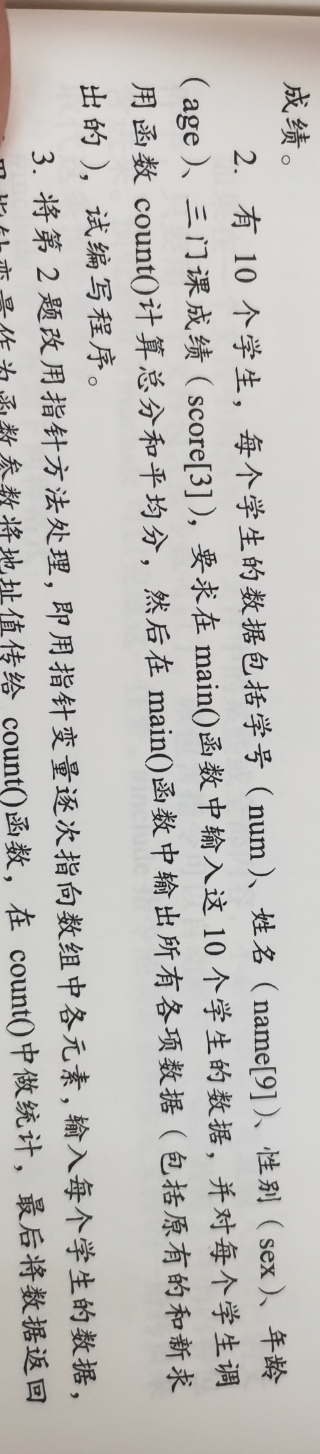 成绩。
2. 有 10 个学生，每个学生的数据包括学号（num）、姓名（name[9]）、性别（sex）、年龄
（age）、三门课成绩（score[3]），要求在 main()函数中输入这 10 个学生的数据，并对每个学生调
用函数 count()计算总分和平均分，然后在 main()函数中输出所有各项数据（包括原有的和新求
出的），试编写程序。
3. 将第 2 题改用指针方法处理，即用指针变量逐次指向数组中各元素，输入每个学生的数据，
用指针变量作为函数参数将地址值传给 count()函数，在 count()中做统计，最后将数据返回